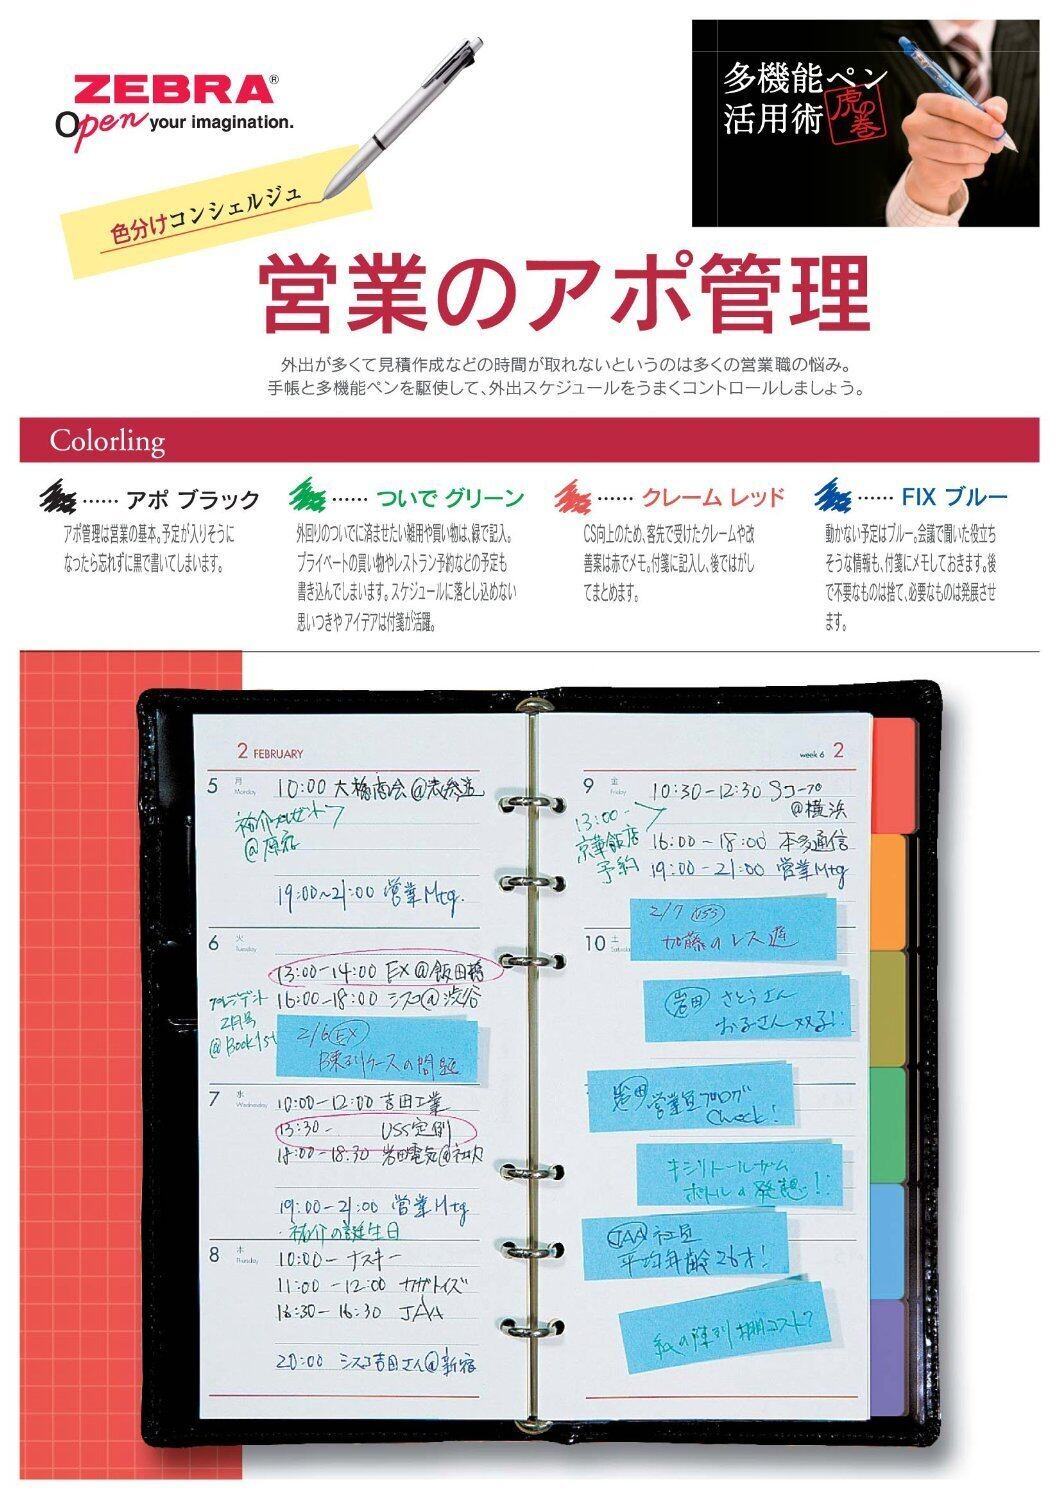 ZEBRA®
Open your imagination.
多機能ペン
活用術
虎の巻
色分けコンシェルジュ
営業のアポ管理
外出が多くて見積作成などの時間が取れないというのは多くの営業職の悩み。
手帳と多機能ペンを駆使して、外出スケジュールをうまくコントロールしましょう。
Colorling
…… アポ ブラック
アポ管理は営業の基本。予定が入りそうに
なったら忘れずに黒で書いてしまいます。
…… ついで グリーン
外回りのついでに済ませたい雑用や買い物は、緑で記入。
プライベートの買い物やレストラン予約などの予定も
書き込んでしまいます。スケジュールに落とし込めない
思いつきや アイデアは付箋が活躍。
…… クレーム レッド
CS向上のため、客先で受けたクレームや改
善案は赤でメモ。付箋に記入し、後ではがし
てまとめます。
…… FIX ブルー
動かない予定はブルー。会議で聞いた役立ち
そうな情報も、付箋にメモしておきます。後
で不要なものは捨て、必要なものは発展させ
ます。
2 FEBRUARY
5 月 Monday
10:00 大橋商会@表参道
祐介プレゼント
@原宿
19:00~21:00 営業Mtg.
6 火 Tuesday
13:00-14:00 EX@飯田橋
16:00-18:00 シスコ@渋谷
プレジデント
2月号
@Book1st
2/6 EX
B陳列ケースの問題
7 水 Wednesday
10:00-12:00 吉田工業
13:30- USS定例
18:00-18:30 岩田電気@社内
19:00-21:00 営業Mtg
・祐介の誕生日
8 木 Thursday
10:00- ナスキー
11:00-12:00 カガトイズ
16:30 JAA
20:00 シスコ吉田さん@新宿
week 6 2
9 金 Friday
10:30-12:30 Sコープ
@横浜
13:00-
京華飯店
予約
16:00-18:00 本多通信
19:00-21:00 営業Mtg
10 土 Saturday
2/7 USS
加藤のレス遅
岩田 さとうさん
お子さん双子!!
岩田 営業員ブログ
Check!
キシリトールガム
ボトルの発想!!
JAA 社員
平均年齢26才!
紙の陳列棚コスト?